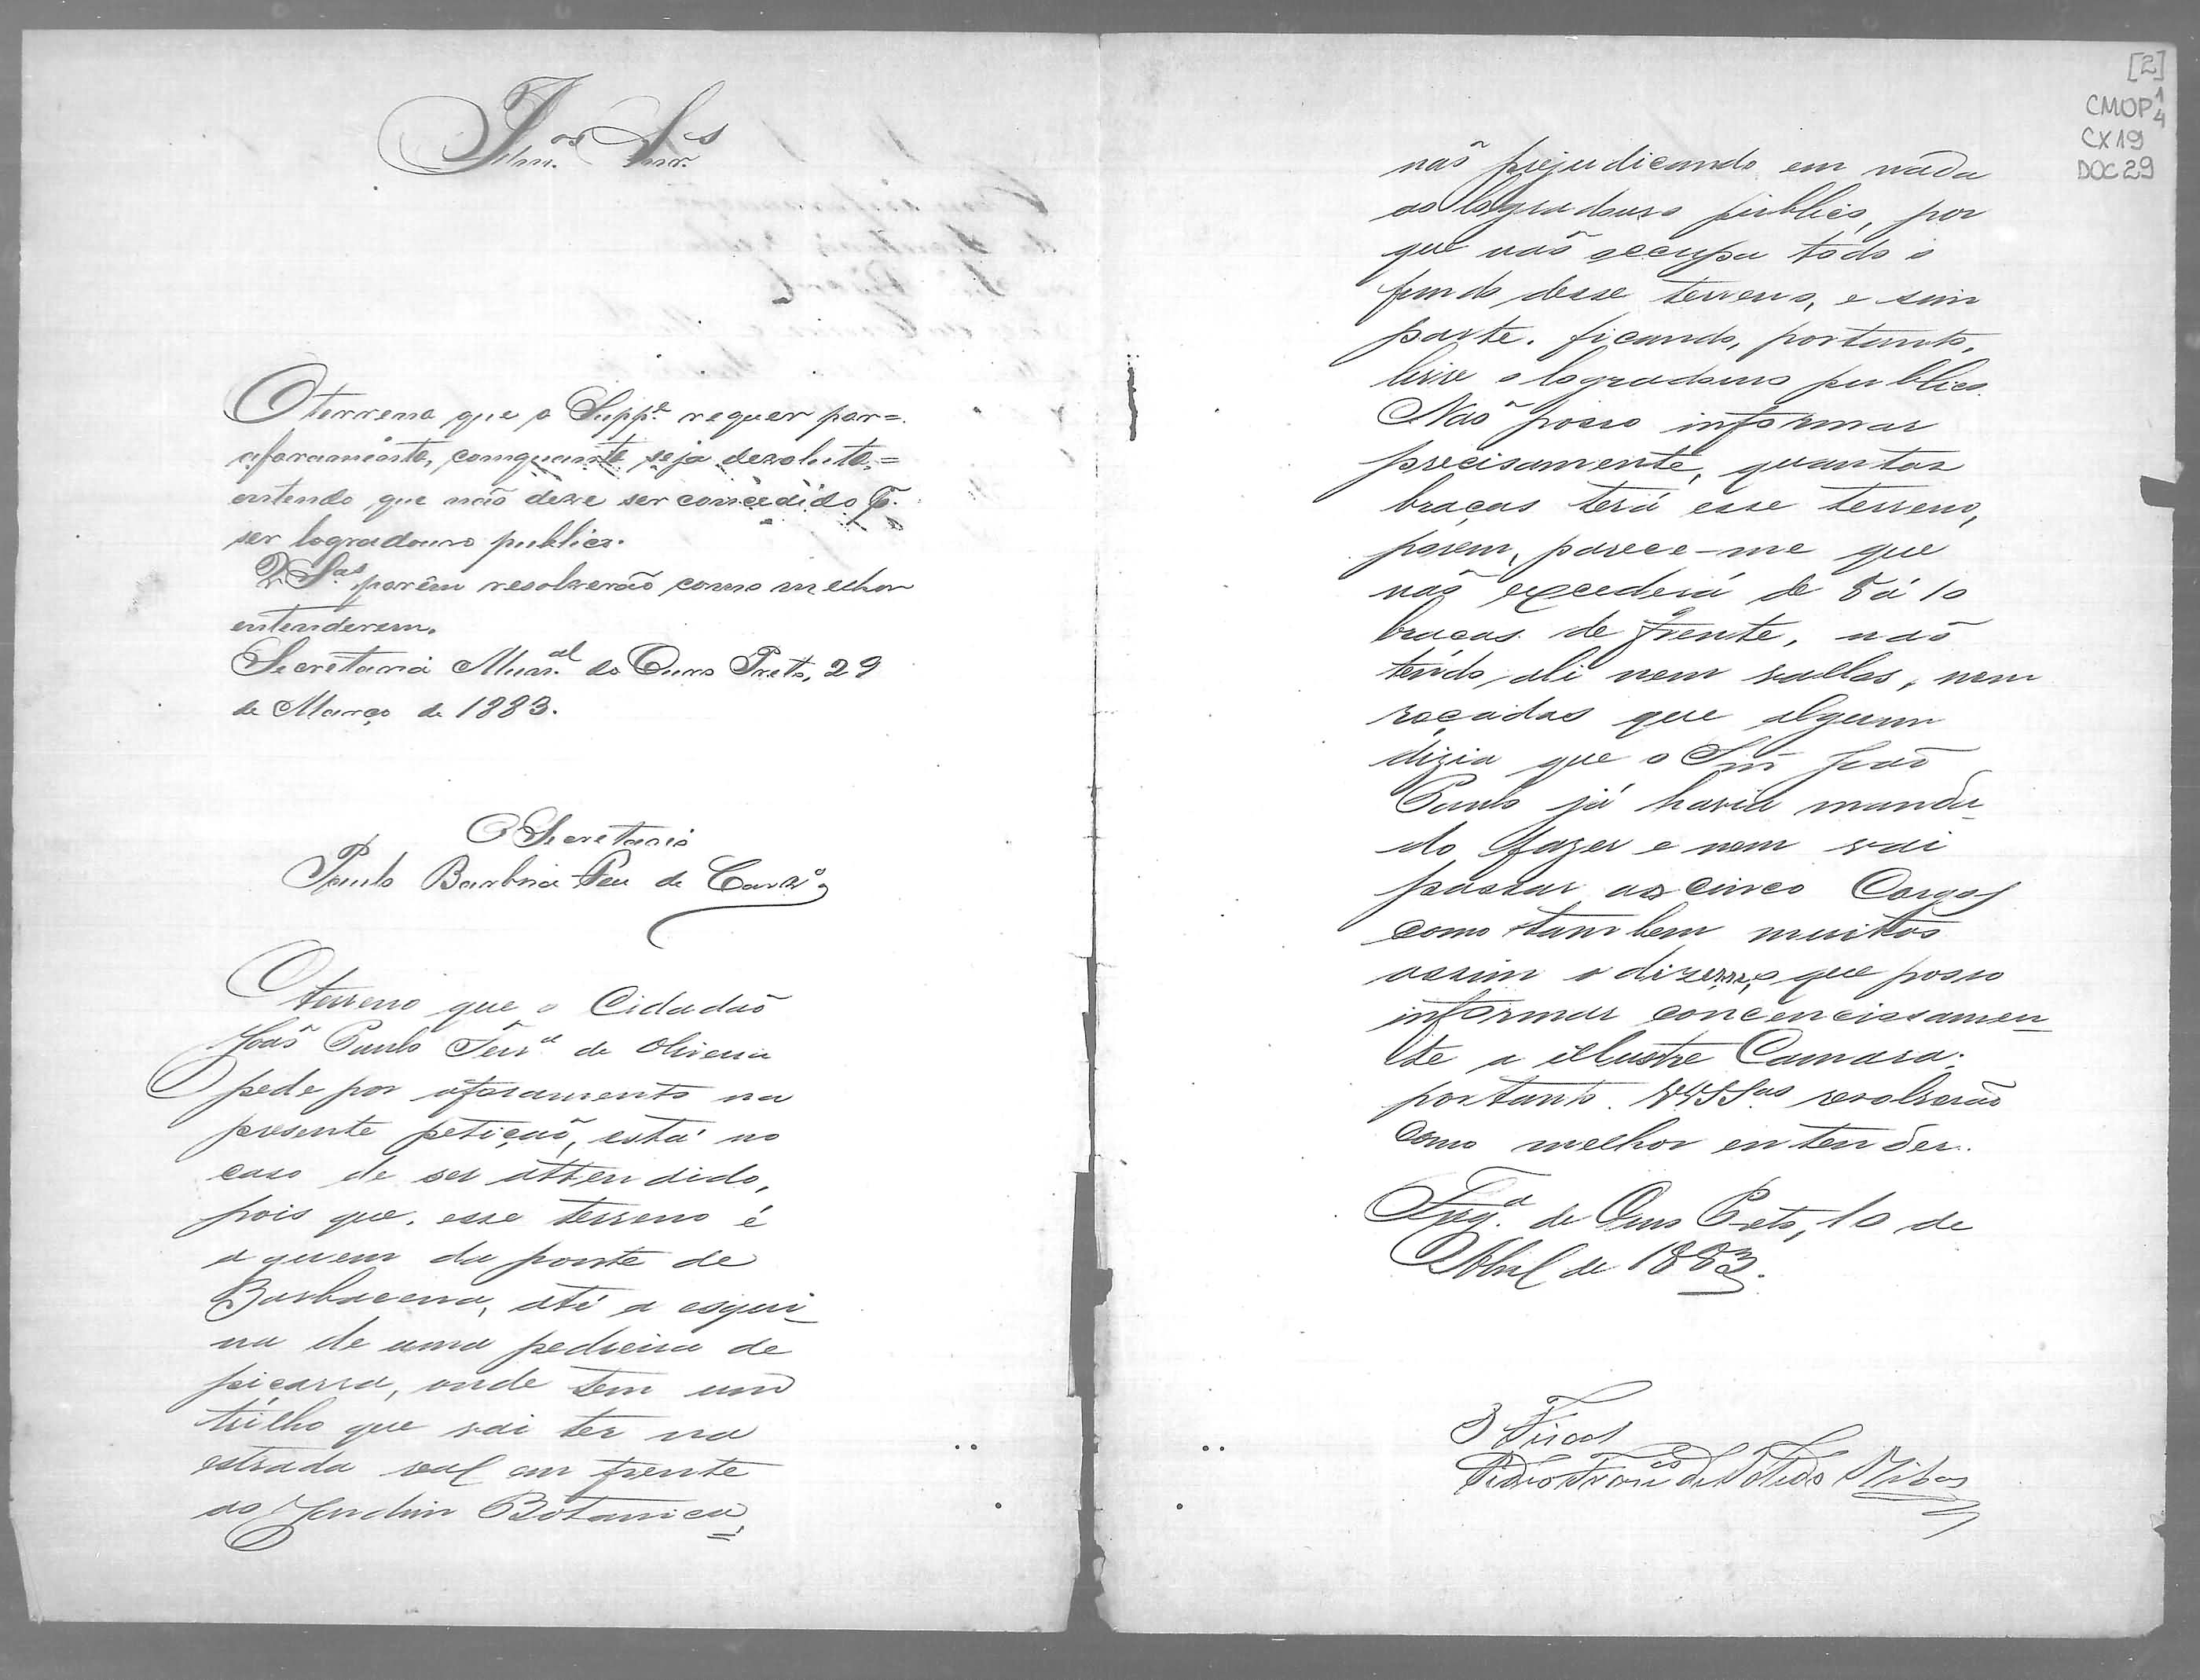 Illm.os Snr.es
O terreno que o Supp.e requer por=
aforamento, comquanto seja devoluto=
entendo que não deve ser concedido p.
ser logradouro publico.
V. S.as porêm resolverão como melhor
entenderem.
Secretaria Mun.al do Ouro Preto, 29
de Março de 1883.
O Secretario
Paulo Barbosa de Carv.o
O terreno que o Cidadaõ
Joaõ Paulo Ferr.a de Oliveira
pede por aforamento na
presente petiçaõ, está no
caso de ser attendido,
pois que, esse terreno é
aquem da ponte de
Barbacena, até a esqui-
na de uma pedreira de
piçarra, onde tem um
trilho que vai ter na
estrada real em frente
ao Jardim Botanico,
[2]
CMOP 1/4
CX19
DOC 29
naõ prejudicando em nada
ao logradouro publico, por
que naõ occupa todo o
fundo desse terreno, e sim
parte. ficando, portanto,
livre o logradouro publico.
Naõ posso informar
precisamente, quantas
braças terá esse terreno,
porem, parece-me que
naõ excederá de 8 á 10
braças de frente, naõ
tendo ali nem vallos, nem
roçadas que alguem
dizia que o Snr Joaõ
Paulo já havia manda-
do fazer e nem vai
passar as cinco
como tambem muitos
assim o dizem, o que posso
informar concenciosamen-
te a illustre Camara.
portanto. VVSS.as resolveraõ
como melhor entender.
de Ouro Preto, 10 de
Abril de 1883.
O Fiscal
Pedro Fran.co de Toledo